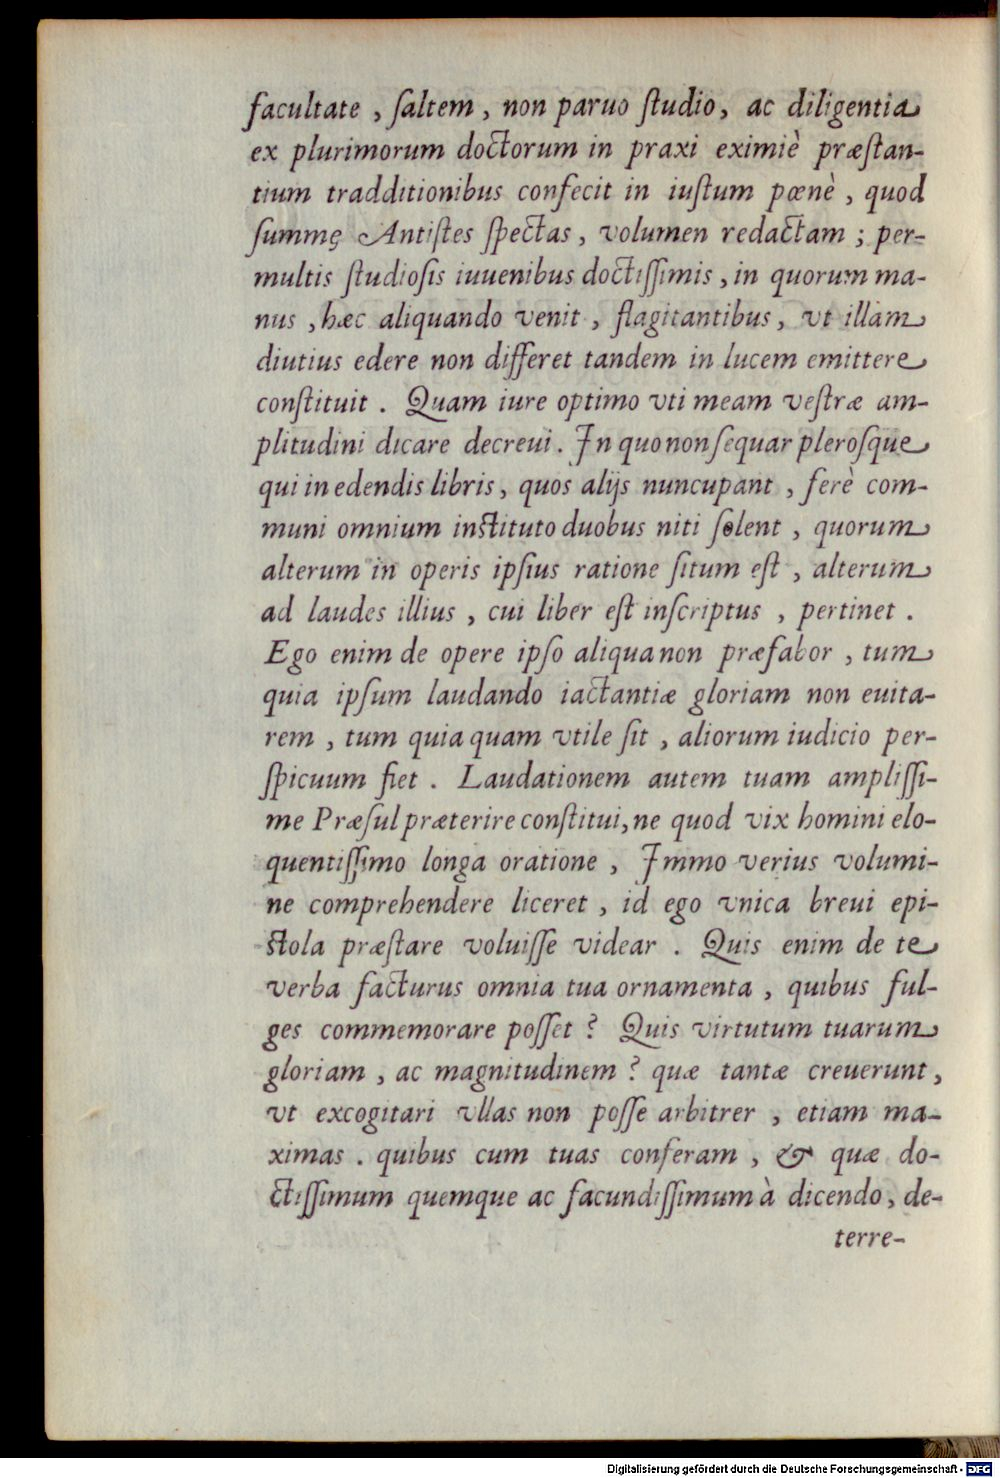 facultate , ſaltem , non paruo ſtudio, ac diligentia
ex plurimorum doctorum in praxi eximiè præſtan-
tium tradditionibus confecit in iuſtum pœnè , quod
ſummę Antiſtes ſpectas , volumen redactam ; per-
multis ſtudioſis iuuenibus doctiſſimis , in quorum ma-
nus , hæc aliquando venit , flagitantibus , vt illam
diutius edere non differet tandem in lucem emittere
conſtituit . Quam iure optimo vti meam veſtræ am-
plitudini dicare decreui . In quo non ſequar pleroſque
qui in edendis libris , quos alijs nuncupant , ferè com-
muni omnium inſtituto duobus niti ſolent , quorum
alterum in operis ipſius ratione ſitum eſt , alterum
ad laudes illius , cui liber eſt inſcriptus , pertinet .
Ego enim de opere ipſo aliqua non præfabor , tum
quia ipſum laudando iactantiæ gloriam non euita-
rem , tum quia quam vtile ſit , aliorum iudicio per-
ſpicuum fiet . Laudationem autem tuam ampliſſi-
me Præſul præterire conſtitui, ne quod vix homini elo-
quentiſſimo longa oratione , Immo verius volumi-
ne comprehendere liceret , id ego vnica breui epi-
ſtola præſtare voluiſſe videar . Quis enim de te
verba facturus omnia tua ornamenta , quibus ful-
ges commemorare poſſet ? Quis virtutum tuarum
gloriam , ac magnitudinem ? quæ tantæ creuerunt ,
vt excogitari vllas non poſſe arbitrer , etiam ma-
ximas . quibus cum tuas conferam , & quæ do-
ctiſſimum quemque ac facundiſſimum à dicendo , de-
terre-
Digitalisierung gefördert durch die Deutsche Forschungsgemeinschaft - DFG